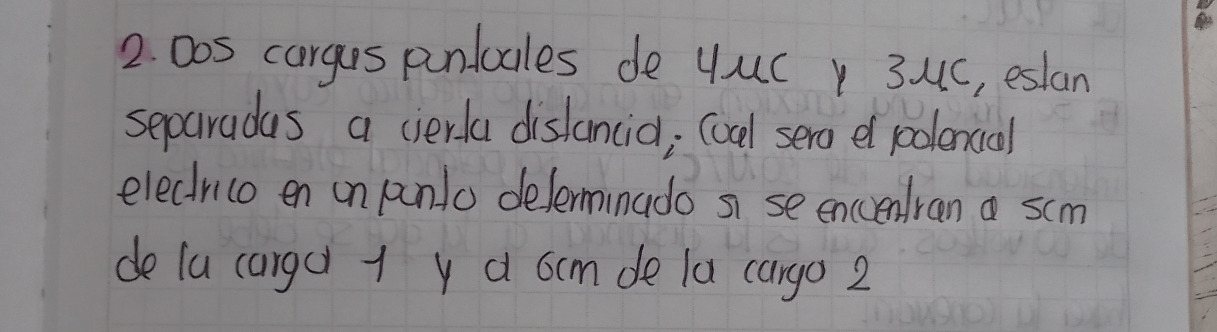 2. Dos cargas puntuales de 4μC y 3μC, estan
separadas a cierta distancia; Cual sera el potencial
electrico en un punto determinado si se encuentran a 5cm
de la carga 1 y a 6cm de la carga 2